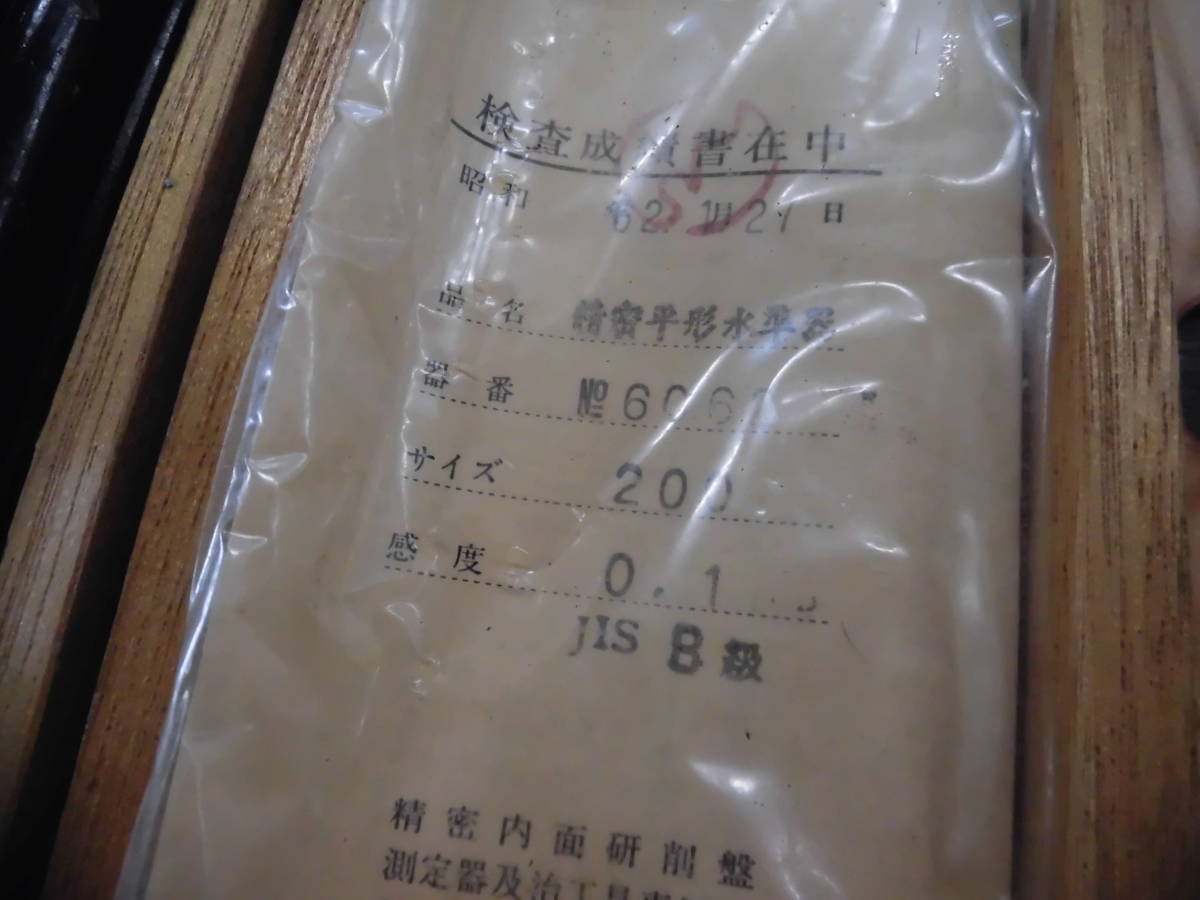 検査成績書在中
昭和 62. 1月27日
品名 精密平形水準器
器番 №606
サイズ 200
感度 0.1
JIS B級
精密内面研削盤
測定器及治工具専